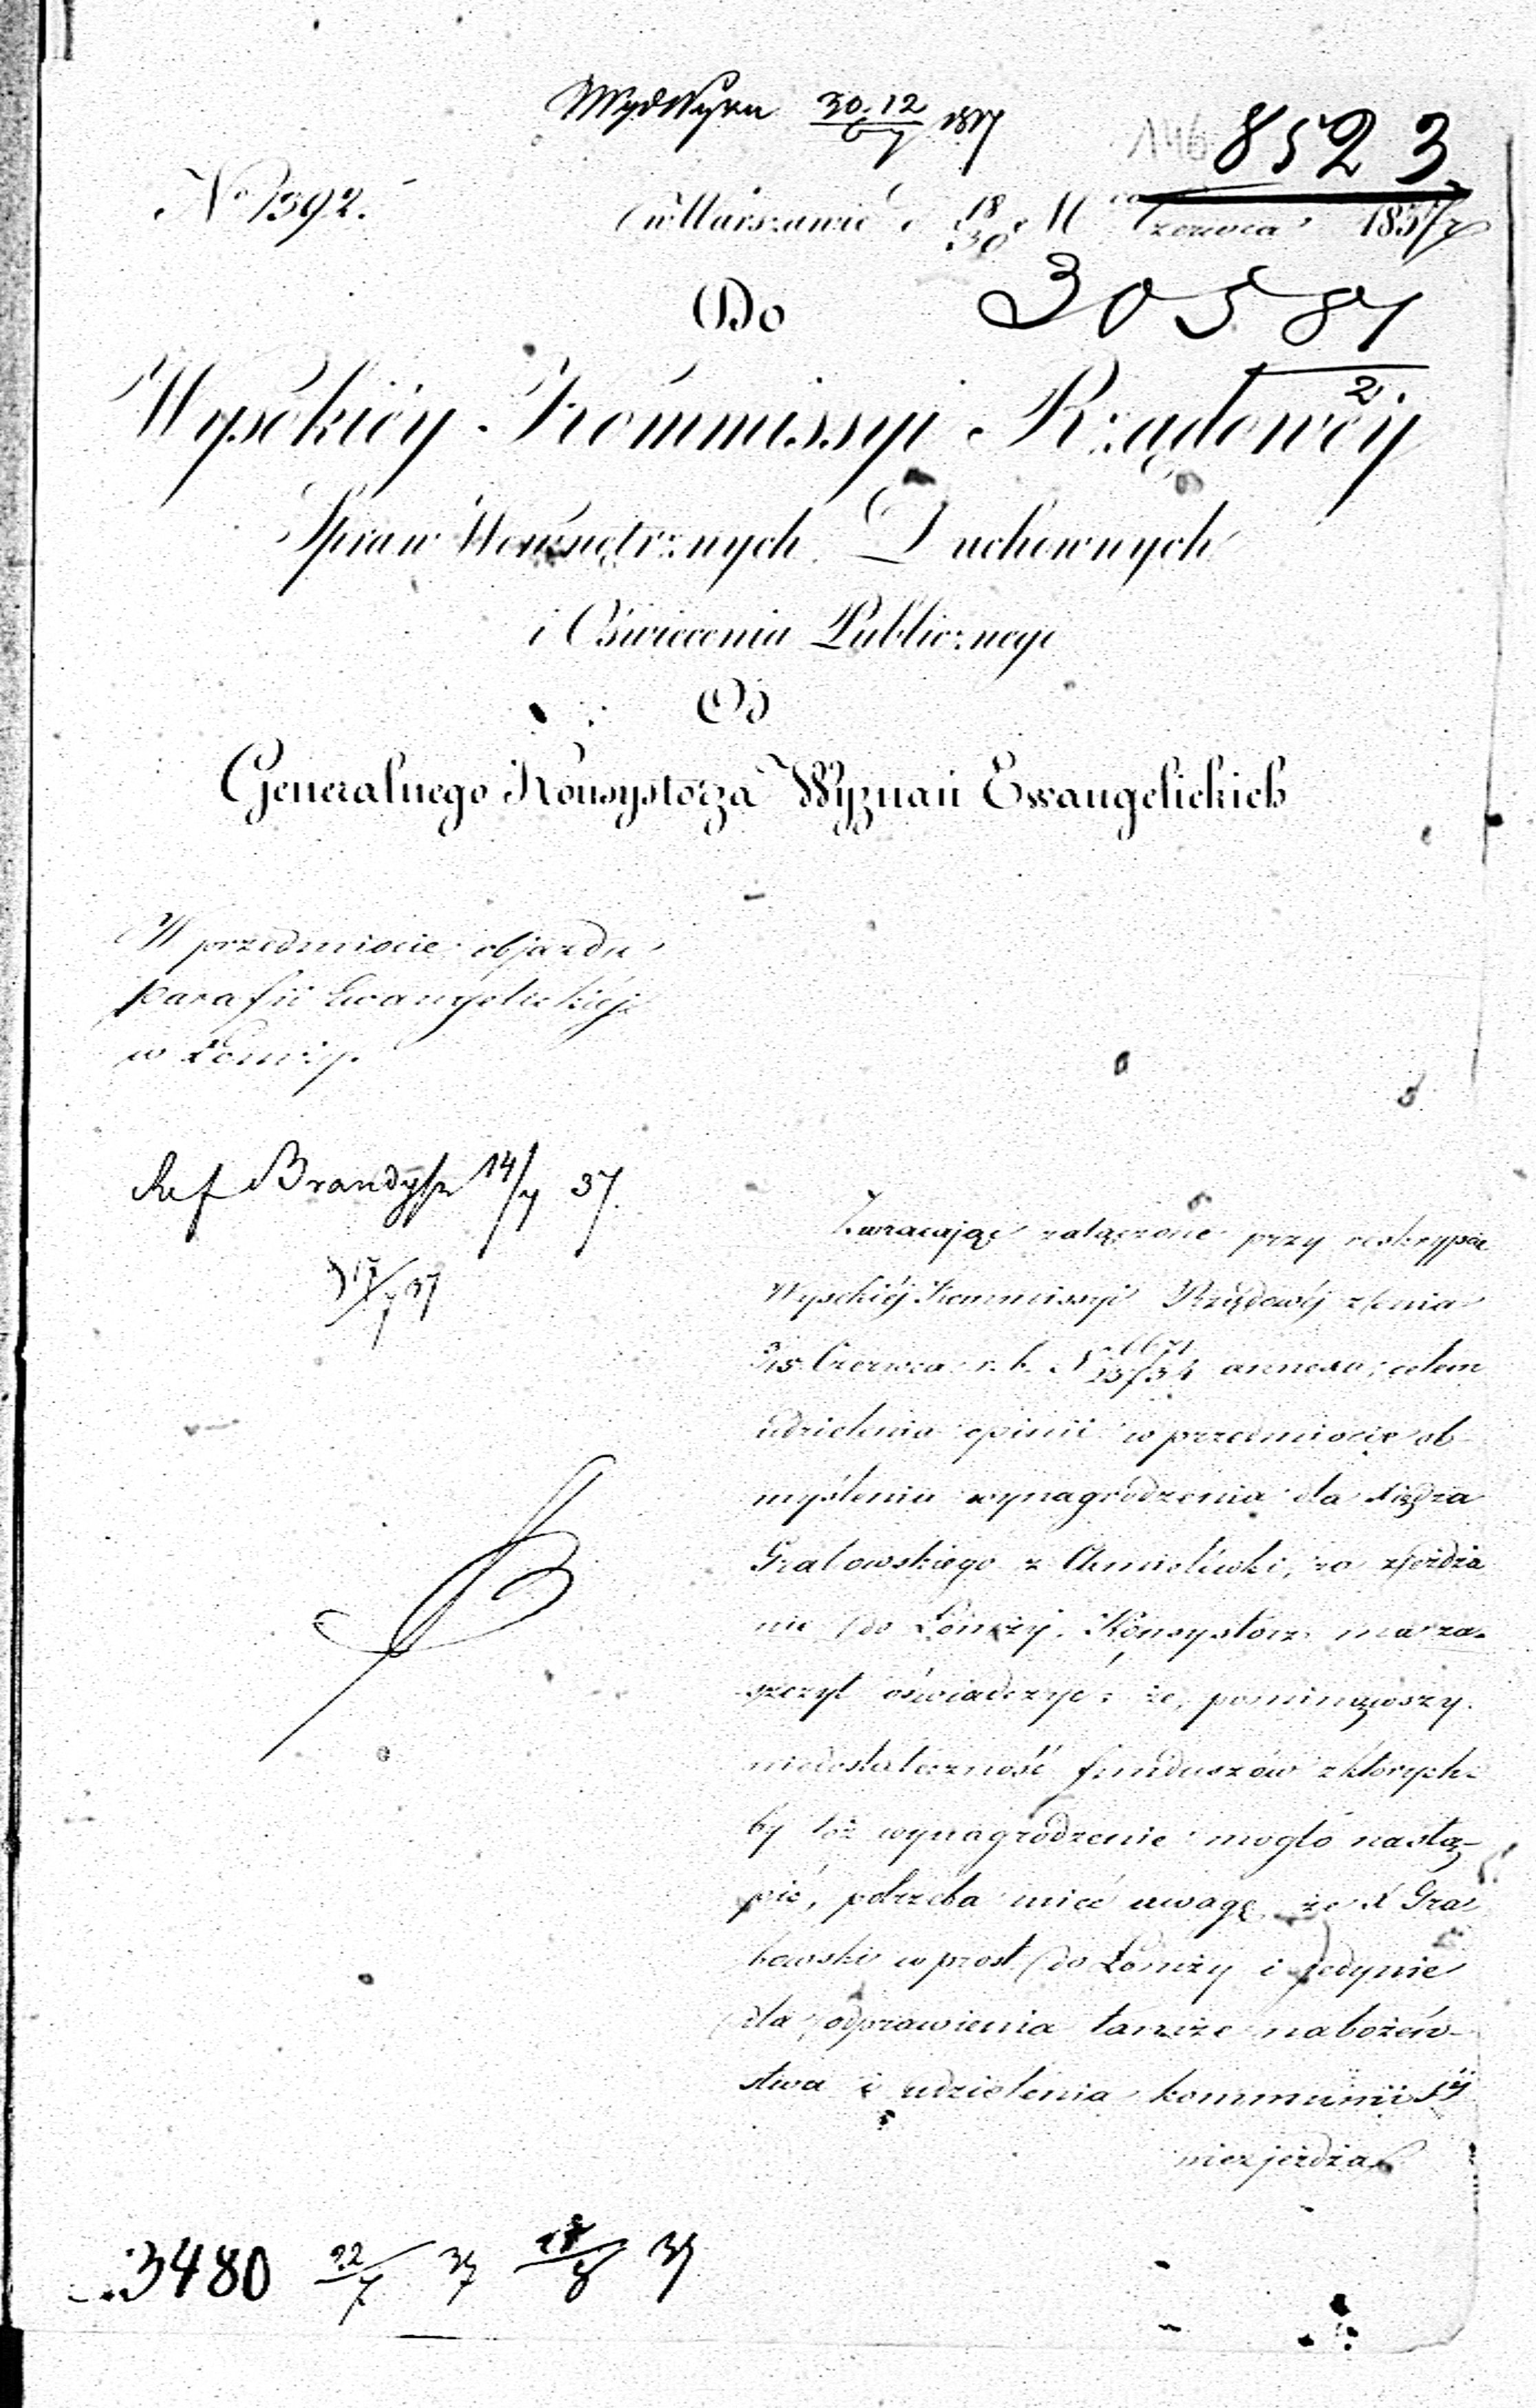 30.12
8523
No 1392.
w Warszawie d 18/30 Mca Czerwca 1837 r
Do
30581
2.
Wysokiéy Kommissyi Rządowéy
Spraw Wewnętrznych Duchownych
i Oświecenia Publicznego
Od
Generalnego Konsystorza Wyznań Ewangelickich
W przedmiocie objazdu
parafii Ewangelickiéj
w Łomży.
Ref Brandysz 14/7 37.
17/7 37
Zwracając załączone przy reskrypcie
Wysokiéj Kommissyi Rządowéj z dnia
3/15 Czerwca r. b. N annexa, celem
udzielenia opinii w przedmiocie ob-
myślenia wynagrodzenia dla Xiędza
Grabowskiego z Chmielówki, za zjeżdża
nie do Łomży. Konsystorz ma za-
szczyt oświadczyć, że, pominąwszy
niedostateczność funduszów z których-
by toż wynagrodzenie mogło nastą-
pić, potrzeba mieć uwagę, że X Gra
bowski wprost do Łomży i jedynie
dla odprawienia tamże nabożeń-
stwa i udzielenia kommunii Sty
niezjeżdża
3480 22/7 37 37